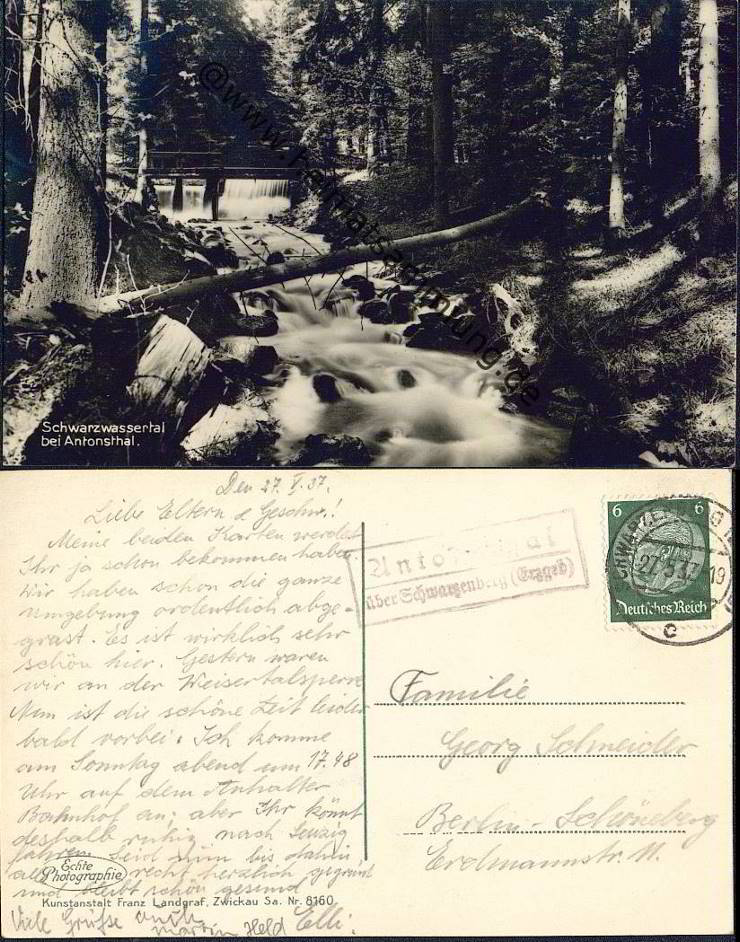 @www.heimatsammlung.de
Schwarzwassertal
bei Antonsthal.
Den 27. V. 37.
Liebe Eltern u. Geschw.!
Meine beiden Karten werdet
Ihr ja schon bekommen haben.
Wir haben schon die ganze
Umgebung ordentlich abge-
grast. Es ist wirklich sehr
schön hier. Gestern waren
wir an der Weisertalsperre
Nun ist die schöne Zeit leider
bald vorbei. Ich komme
am Sonntag abend um 17.48
Uhr auf dem Anhalter
Bahnhof an, aber Ihr könnt
deshalb ruhig nach
fahren. Seid nun bis dahin
recht herzlich gegrüßt
und bleibt schön gesund
Viele Grüße auch
Martin Held Elli.
Echte
Photographie
Kunstanstalt Franz Landgraf, Zwickau Sa. Nr. 8160
Antonsthal
über Schwarzenberg (Erzgeb)
6 6
Deutsches Reich
27.5.37 19
c
Familie
Georg Schneider
Berlin-Schöneberg
Erdmannstr. 11.